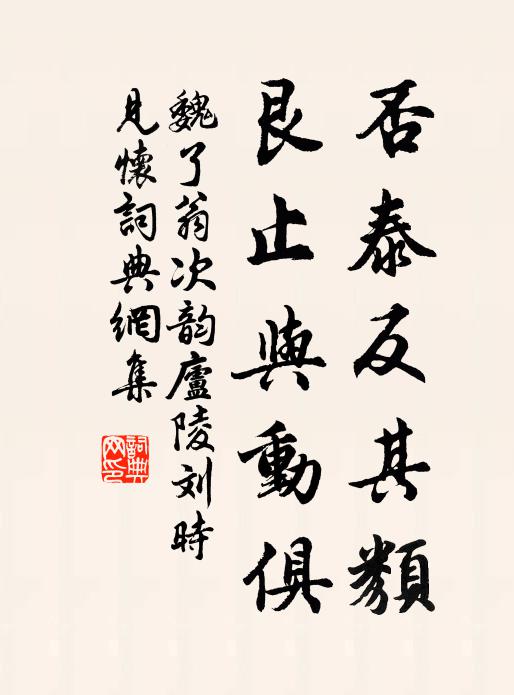 否泰反其類
艮止與動俱
魏了翁次韵廬陵刘時
見懷詞典網集
詞典网印